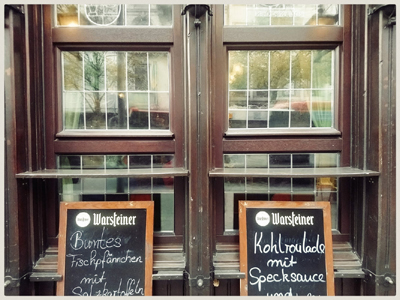 Warsteiner
Buntes
Fischpfännchen
mit
Salzkartoffeln
Warsteiner
Kohlroulade
mit
Specksauce
und